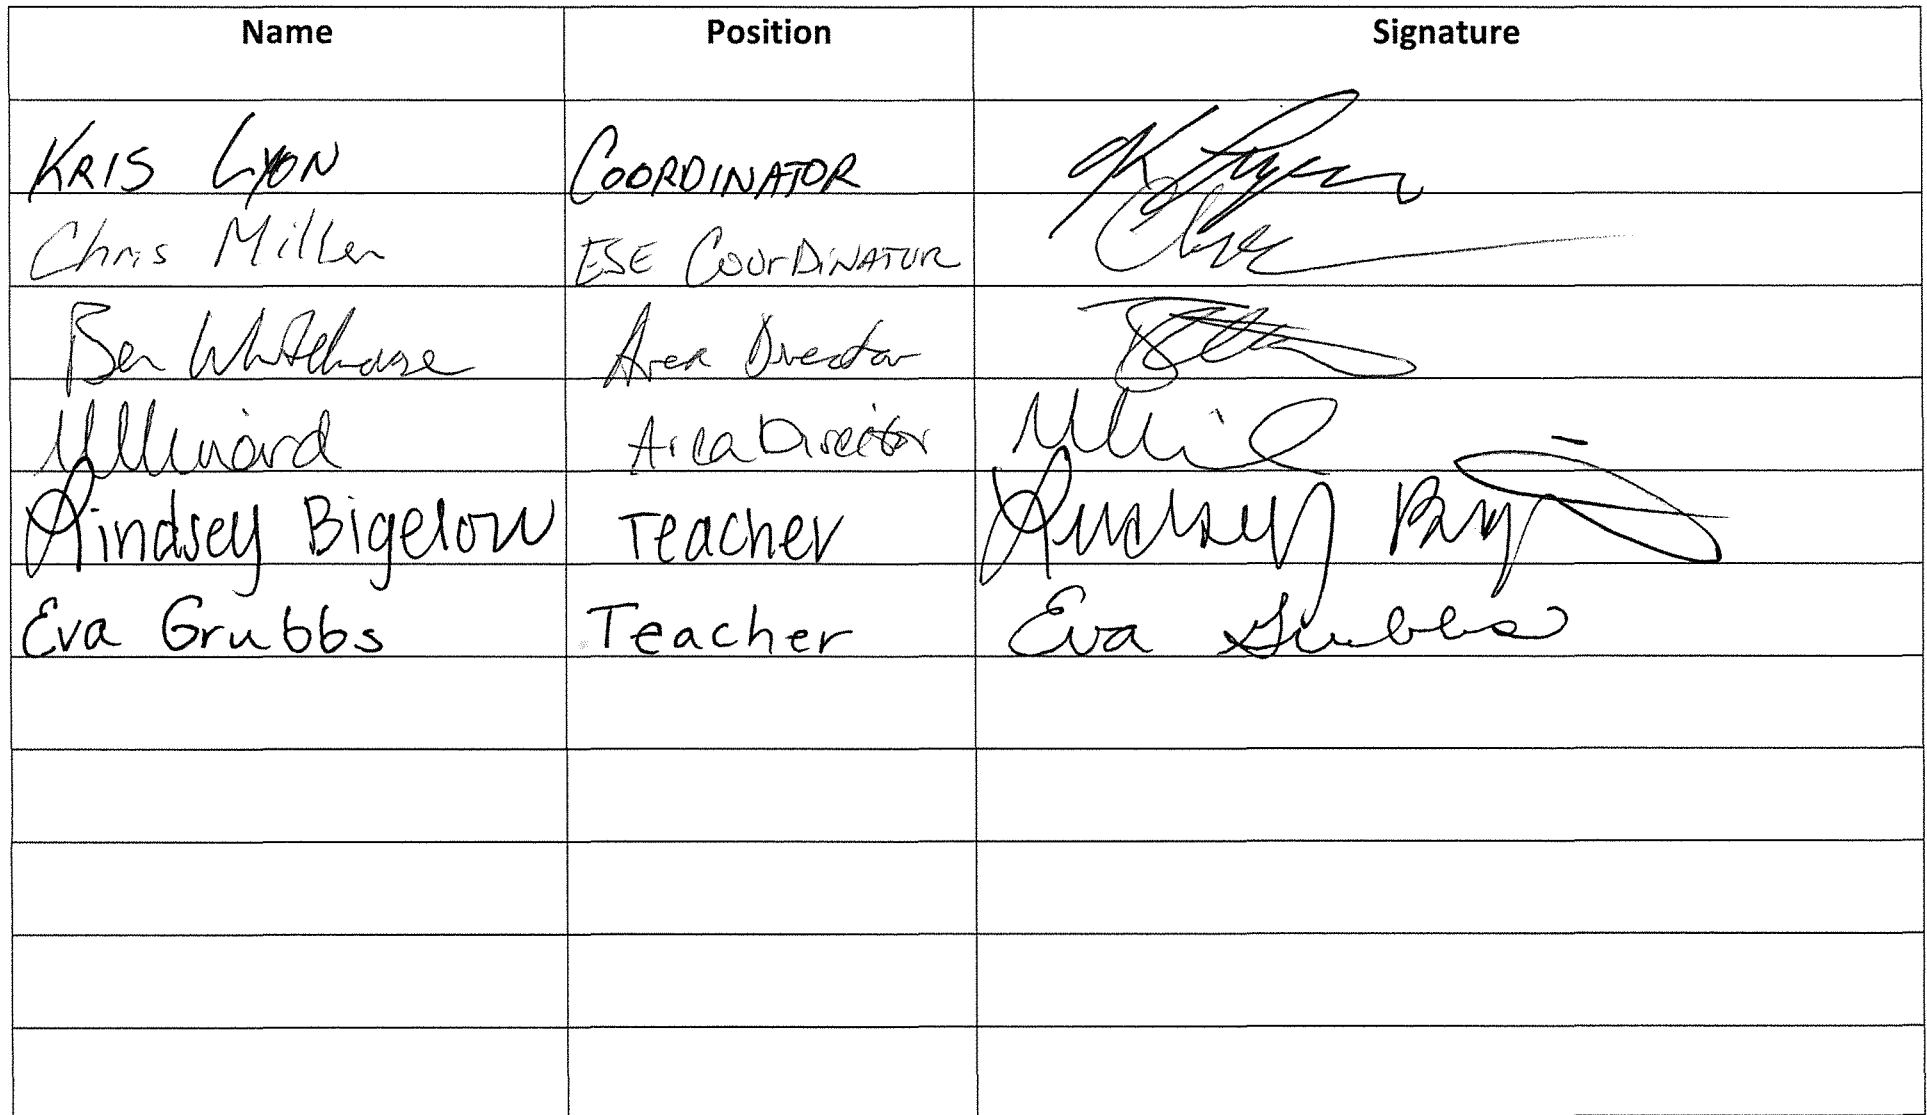 Name Position Signature
KRIS LYON COORDINATOR
Chris Miller ESE COORDINATOR
Ben Whitehouse Area Director
Area Director
Lindsey Bigelow Teacher Lindsey
Eva Grubbs Teacher Eva Grubbs